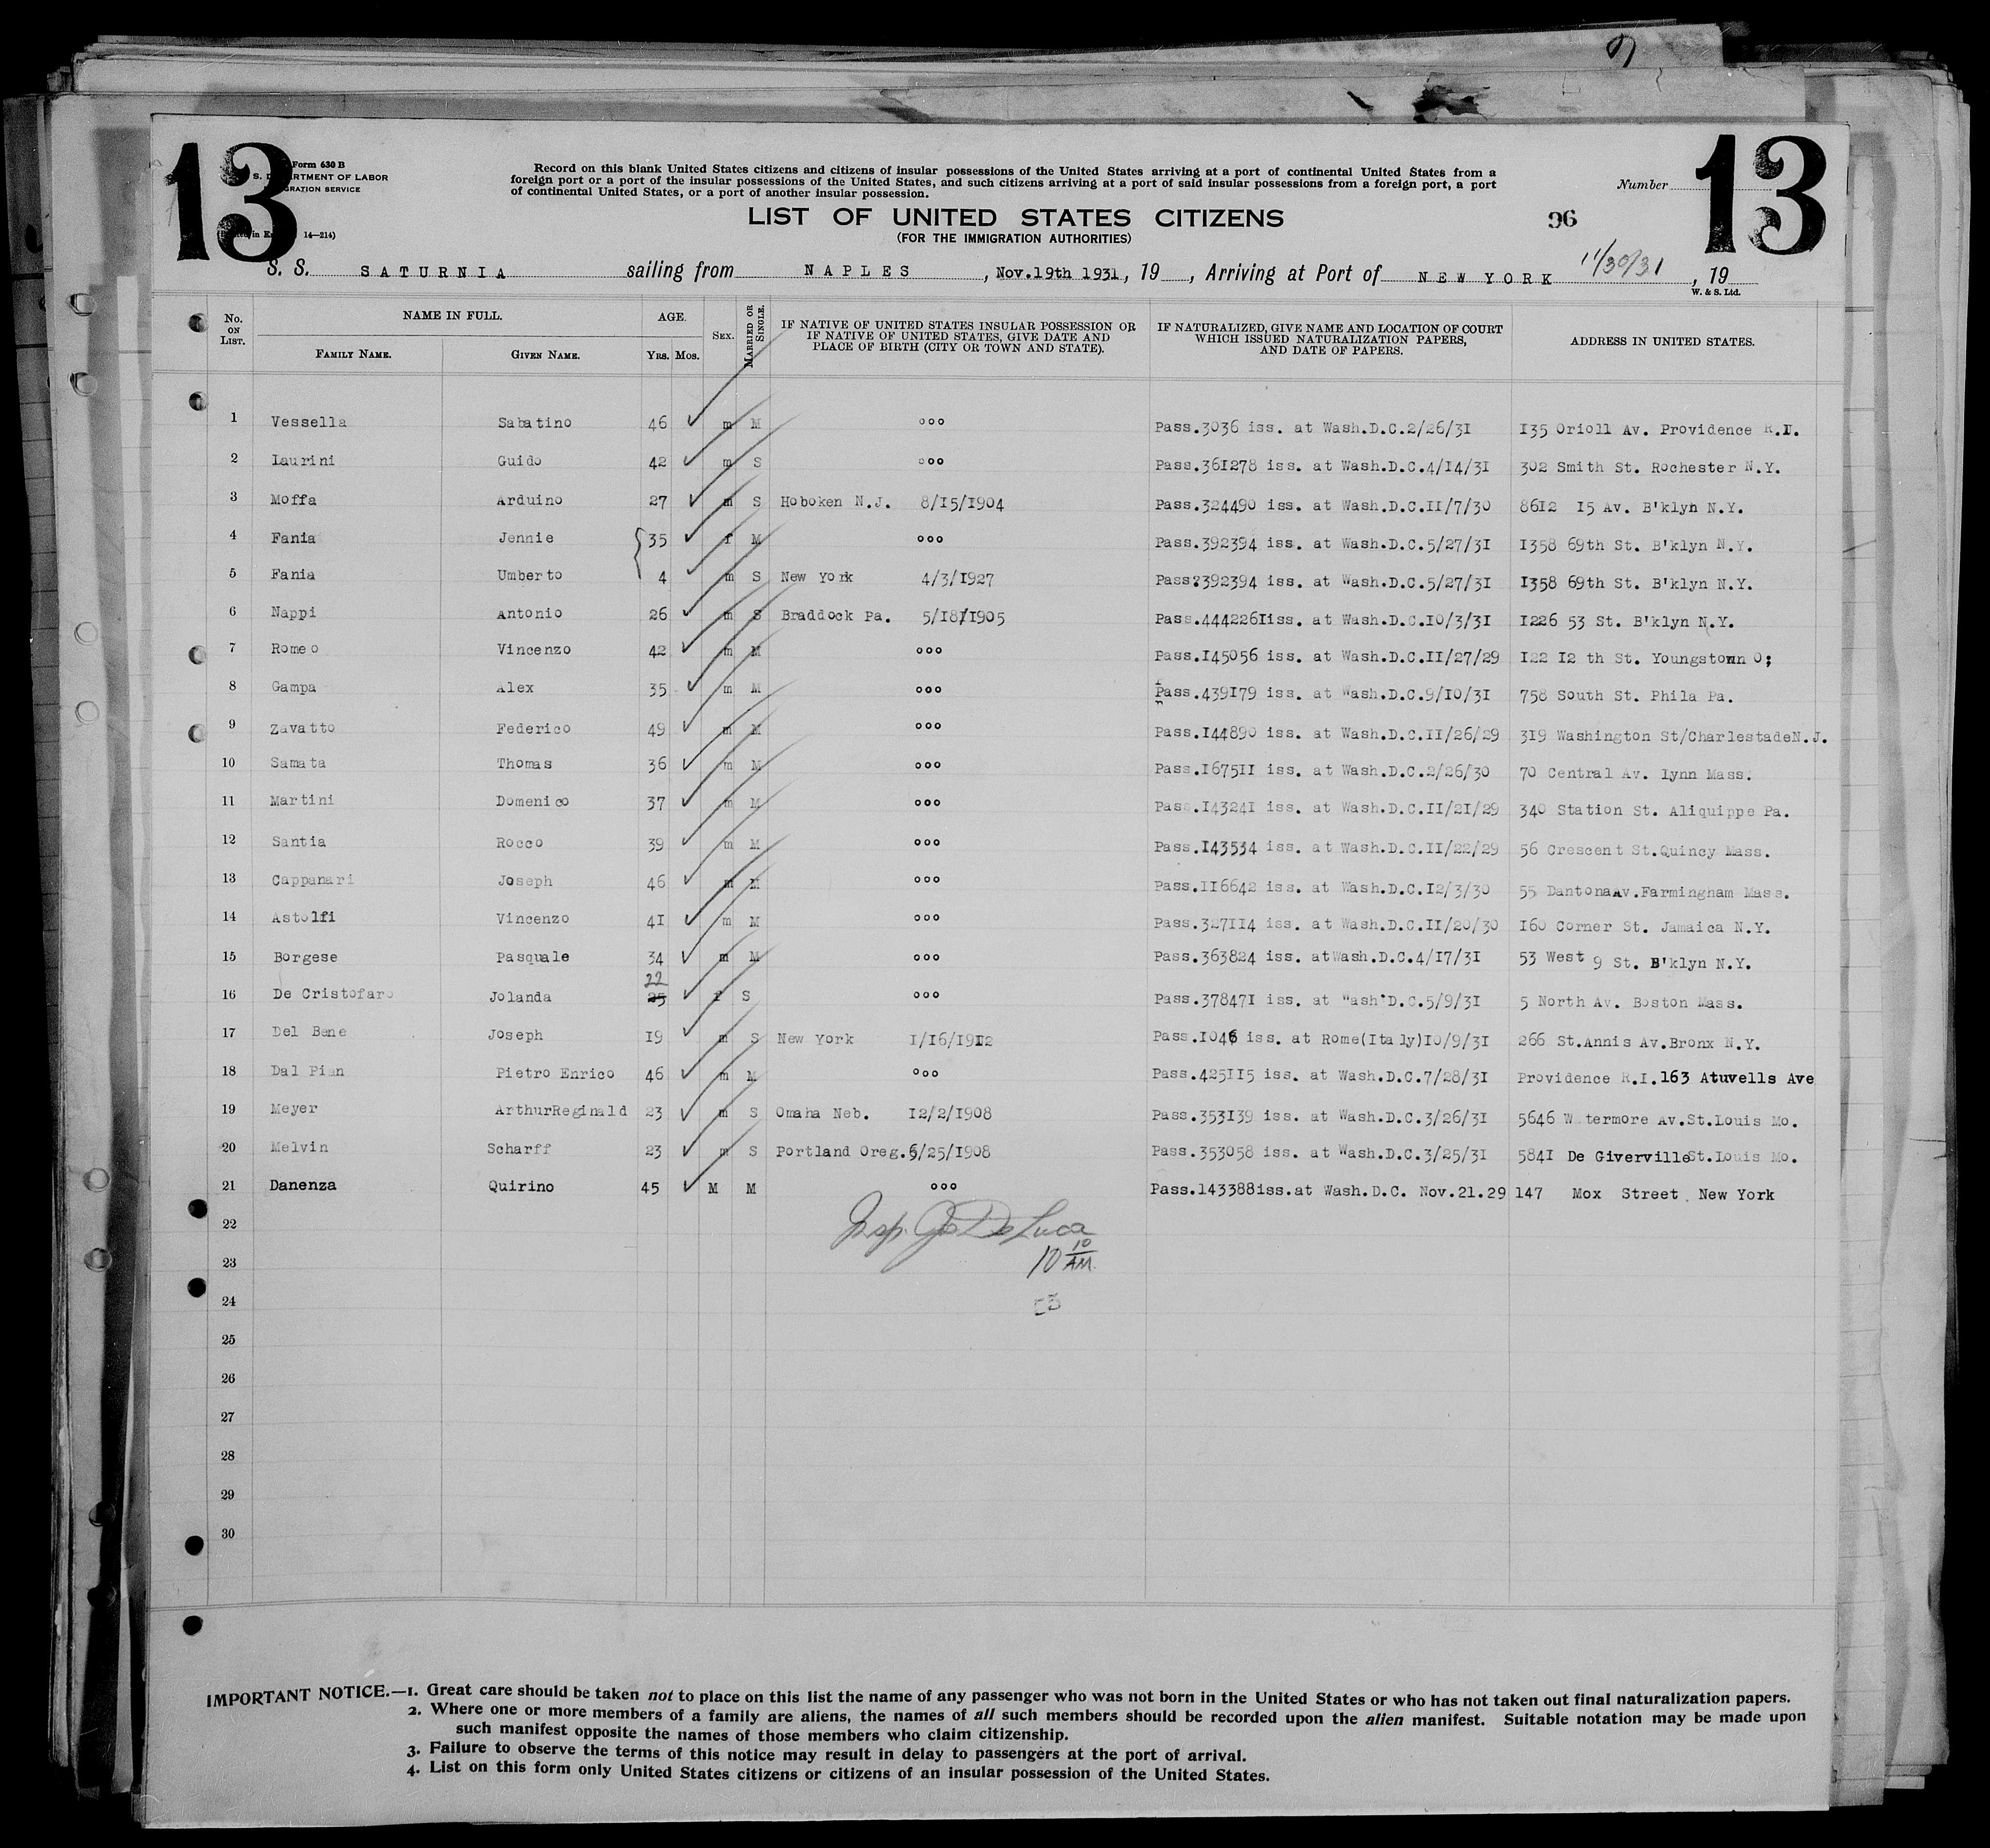 13
13
Form 630 B
S. DEPARTMENT OF LABOR
GRATION SERVICE
14—214)
Record on this blank United States citizens and citizens of insular possessions of the United States arriving at a port of continental United States from a
foreign port or a port of the insular possessions of the United States, and such citizens arriving at a port of said insular possessions from a foreign port, a port
of continental United States, or a port of another insular possession.
Number
LIST OF UNITED STATES CITIZENS
96
(FOR THE IMMIGRATION AUTHORITIES)
S. S. SATURNIA sailing from NAPLES, Nov.19th 1931, 19 , Arriving at Port of NEW YORK 11/30/31, 19
W. & S. Ltd.
No. ON LIST. NAME IN FULL. AGE. SEX. MARRIED OR SINGLE. IF NATIVE OF UNITED STATES INSULAR POSSESSION OR IF NATIVE OF UNITED STATES, GIVE DATE AND PLACE OF BIRTH (CITY OR TOWN AND STATE). IF NATURALIZED, GIVE NAME AND LOCATION OF COURT WHICH ISSUED NATURALIZATION PAPERS, AND DATE OF PAPERS. ADDRESS IN UNITED STATES.
FAMILY NAME. GIVEN NAME. YRS. MOS.
1 Vessella Sabatino 46 m M ooo Pass.3036 iss. at Wash.D.C.2/26/31 135 Orioll Av. Providence R.I.
2 Laurini Guido 42 m S ooo Pass.361278 iss. at Wash.D.C.4/14/31 302 Smith St. Rochester N.Y.
3 Moffa Arduino 27 m S Hoboken N.J. 8/15/1904 Pass.324490 iss. at Wash.D.C.11/7/30 8612 15 Av. B'klyn N.Y.
4 Fania Jennie 35 f M ooo Pass.392394 iss. at Wash.D.C.5/27/31 1358 69th St. B'klyn N.Y.
5 Fania Umberto 4 m S New York 4/3/1927 Pass?392394 iss. at Wash.D.C.5/27/31 1358 69th St. B'klyn N.Y.
6 Nappi Antonio 26 m S Braddock Pa. 5/18/1905 Pass.444226Iiss. at Wash.D.C.10/3/31 1226 53 St. B'klyn N.Y.
7 Romeo Vincenzo 42 m M ooo Pass.145056 iss. at Wash.D.C.11/27/29 122 12 th St. Youngstown O;
8 Gampa Alex 35 m M ooo Pass.439179 iss. at Wash.D.C.9/10/31 758 South St. Phila Pa.
9 Zavatto Federico 49 m M ooo Pass.144890 iss. at Wash.D.C.11/26/29 319 Washington St/CharlestadeN.J.
10 Samata Thomas 36 m M ooo Pass.167511 iss. at Wash.D.C.2/26/30 70 Central Av. Lynn Mass.
11 Martini Domenico 37 m M ooo Pass.143241 iss. at Wash.D.C.11/21/29 340 Station St. Aliquippe Pa.
12 Santia Rocco 39 m M ooo Pass.143534 iss. at Wash.D.C.11/22/29 56 Crescent St.Quincy Mass.
13 Cappanari Joseph 46 m M ooo Pass.116642 iss. at Wash.D.C.12/3/30 55 DantonaAv.Farmingham Mass.
14 Astolfi Vincenzo 41 m M ooo Pass.327114 iss. at Wash.D.C.11/20/30 160 Corner St. Jamaica N.Y.
15 Borgese Pasquale 34 m M ooo Pass.363824 iss. atWash.D.C.4/17/31 53 West 9 St. B'klyn N.Y.
22
16 De Cristofaro Jolanda 25 f S ooo Pass.378471 iss. at "ash'D.C.5/9/31 5 North Av. Boston Mass.
17 Del Bene Joseph 19 m S New York 1/16/1912 Pass.1046 iss. at Rome(Italy)10/9/31 266 St.Annis Av.Bronx N.Y.
18 Dal Pian Pietro Enrico 46 m M ooo Pass.425115 iss. at Wash.D.C.7/28/31 Providence R.I.163 Atuvells Ave
19 Meyer ArthurReginald 23 m S Omaha Neb. 12/2/1908 Pass.353139 iss. at Wash.D.C.3/26/31 5646 W termore Av.St.Louis Mo.
20 Melvin Scharff 23 m S Portland Oreg.6/25/1908 Pass.353058 iss. at Wash.D.C.3/25/31 5841 De GivervilleSt.Louis Mo.
21 Danenza Quirino 45 M M ooo Pass.143388iss.at Wash.D.C. Nov.21.29 147 Mox Street New York
22 Insp. Jo DeLuca
23 10 10 AM.
24
25
26
27
28
29
30
IMPORTANT NOTICE.—1. Great care should be taken not to place on this list the name of any passenger who was not born in the United States or who has not taken out final naturalization papers.
2. Where one or more members of a family are aliens, the names of all such members should be recorded upon the alien manifest. Suitable notation may be made upon
such manifest opposite the names of those members who claim citizenship.
3. Failure to observe the terms of this notice may result in delay to passengers at the port of arrival.
4. List on this form only United States citizens or citizens of an insular possession of the United States.